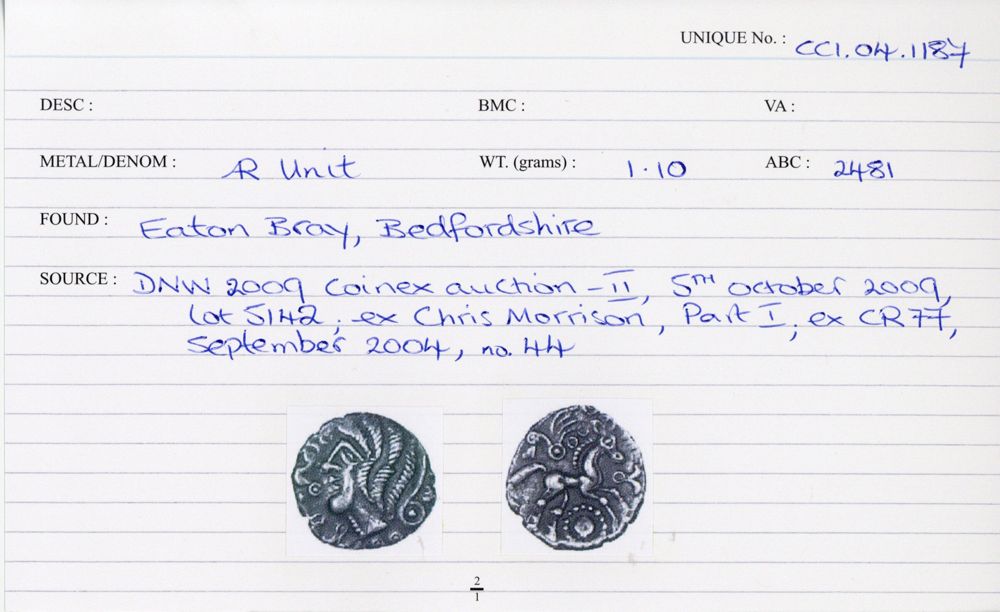 UNIQUE No. : CCI.04.1187
DESC : BMC : VA :
METAL/DENOM : AR Unit WT. (grams) : 1.10 ABC : 2481
FOUND : Eaton Bray, Bedfordshire
SOURCE : DNW 2009 Coinex auction - II, 5TH october 2009,
lot 5142; ex Chris Morrison, Part I; ex CR77,
September 2004, no. 44
2
1